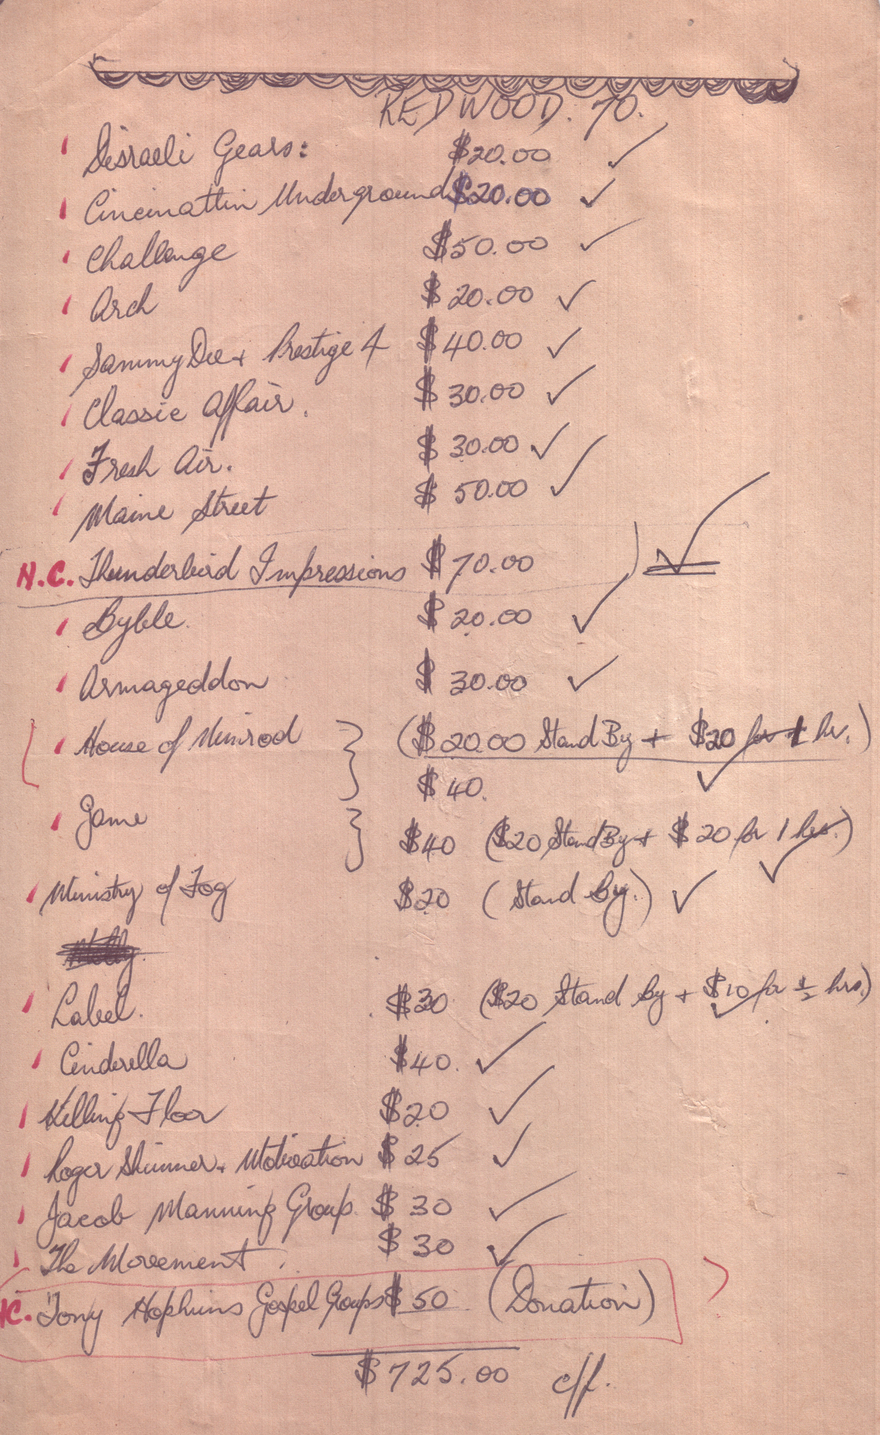 REDWOOD. 70.
Disraeli Gears: $20.00
Cincinattin Underground $20.00
Challenge $50.00
Arch $20.00
Sammy Dee + Prestige 4 $40.00
Classic Affair. $30.00
Fresh Air. $30.00
Maine Street $50.00
N.C. Thunderbird Impressions $70.00
Byble. $20.00
Armageddon $30.00
House of Nimrod ($20.00 Stand By + $20 for 1 hr.)
$40.
Game $40 ($20 Stand By + $20 for 1 hr.)
Ministry of Fog $20 (Stand by.)
Label. $30 ($20 Stand by + $10 for ½ hrs.)
Cinderella $40.
Killing Floor $20
Roger Skinner + Motivation $25
Jacob Manning Group $30
The Movement. $30
NC. Tony Hopkins Gospel Groups $50 (Donation)
$725.00 c/f.